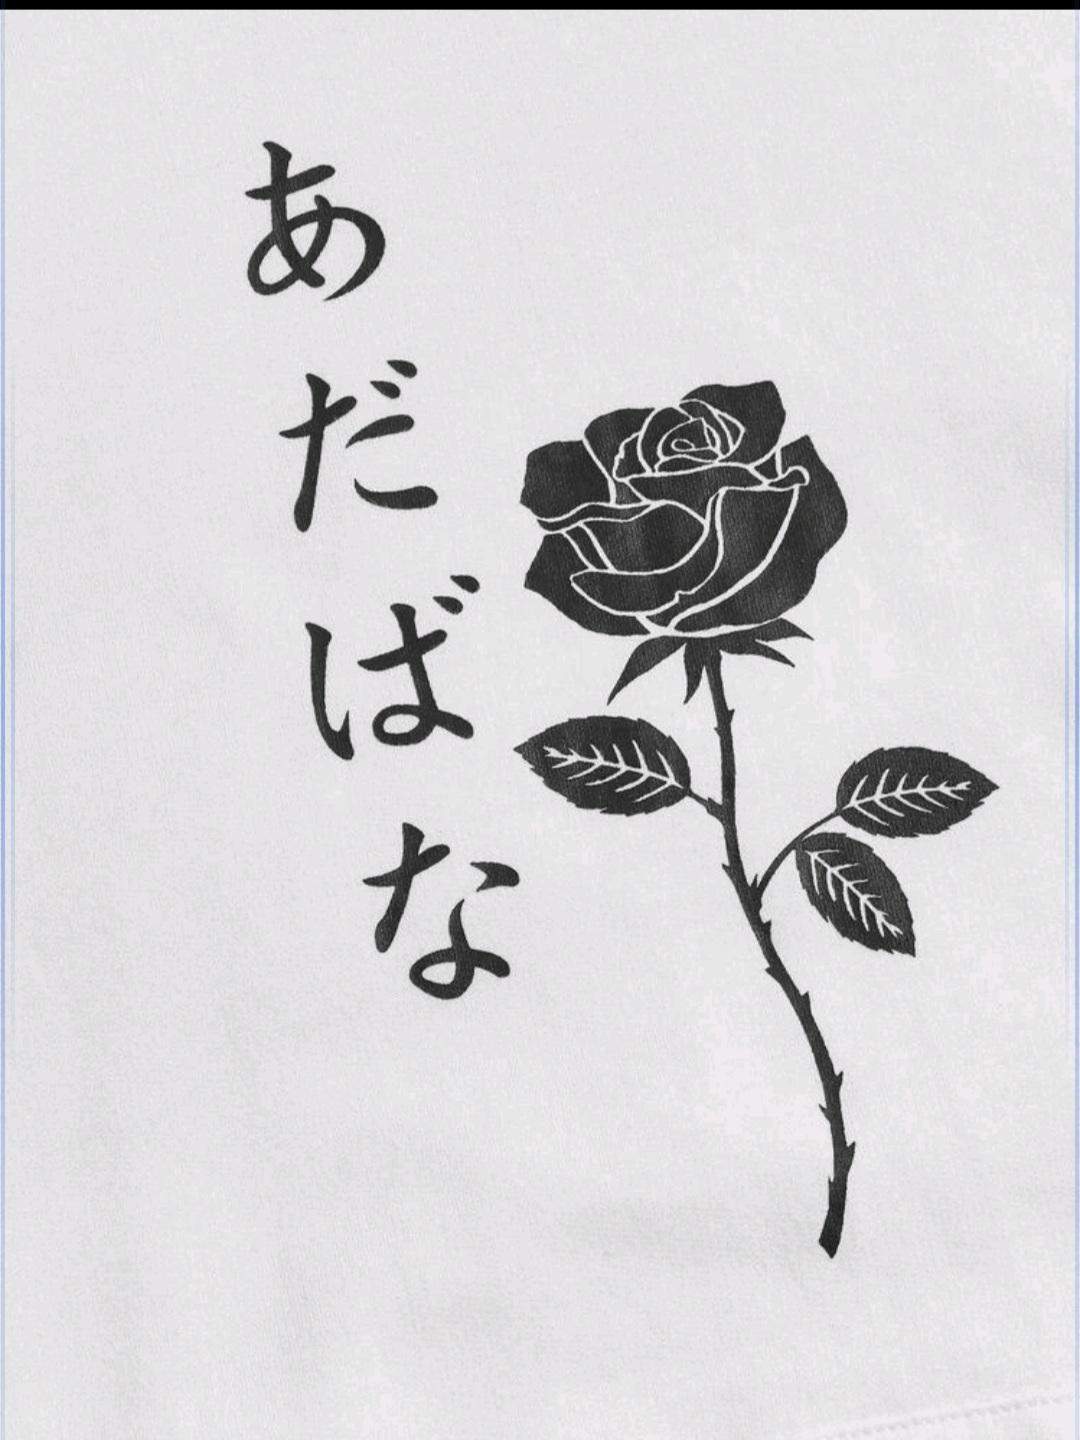 あだばな